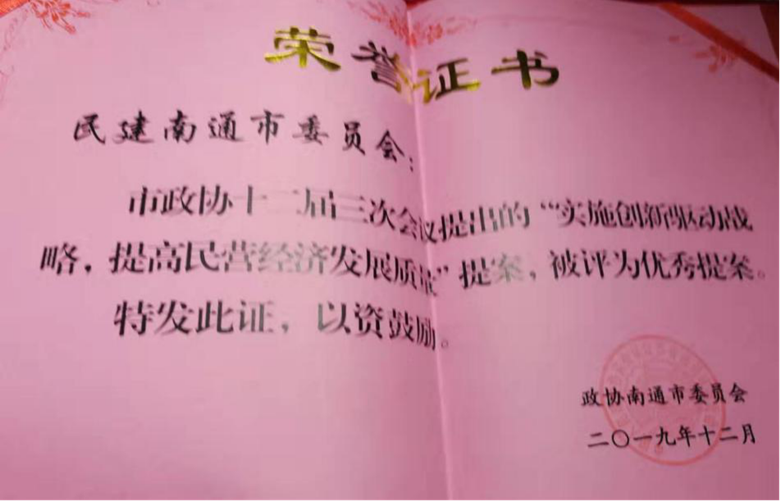 荣誉证书
民建南通市委员会:
市政协十二届三次会议提出的“实施创新驱动战
略，提高民营经济发展质量”提案，被评为优秀提案。
特发此证，以资鼓励。
政协南通市委员会
二〇一九年十二月